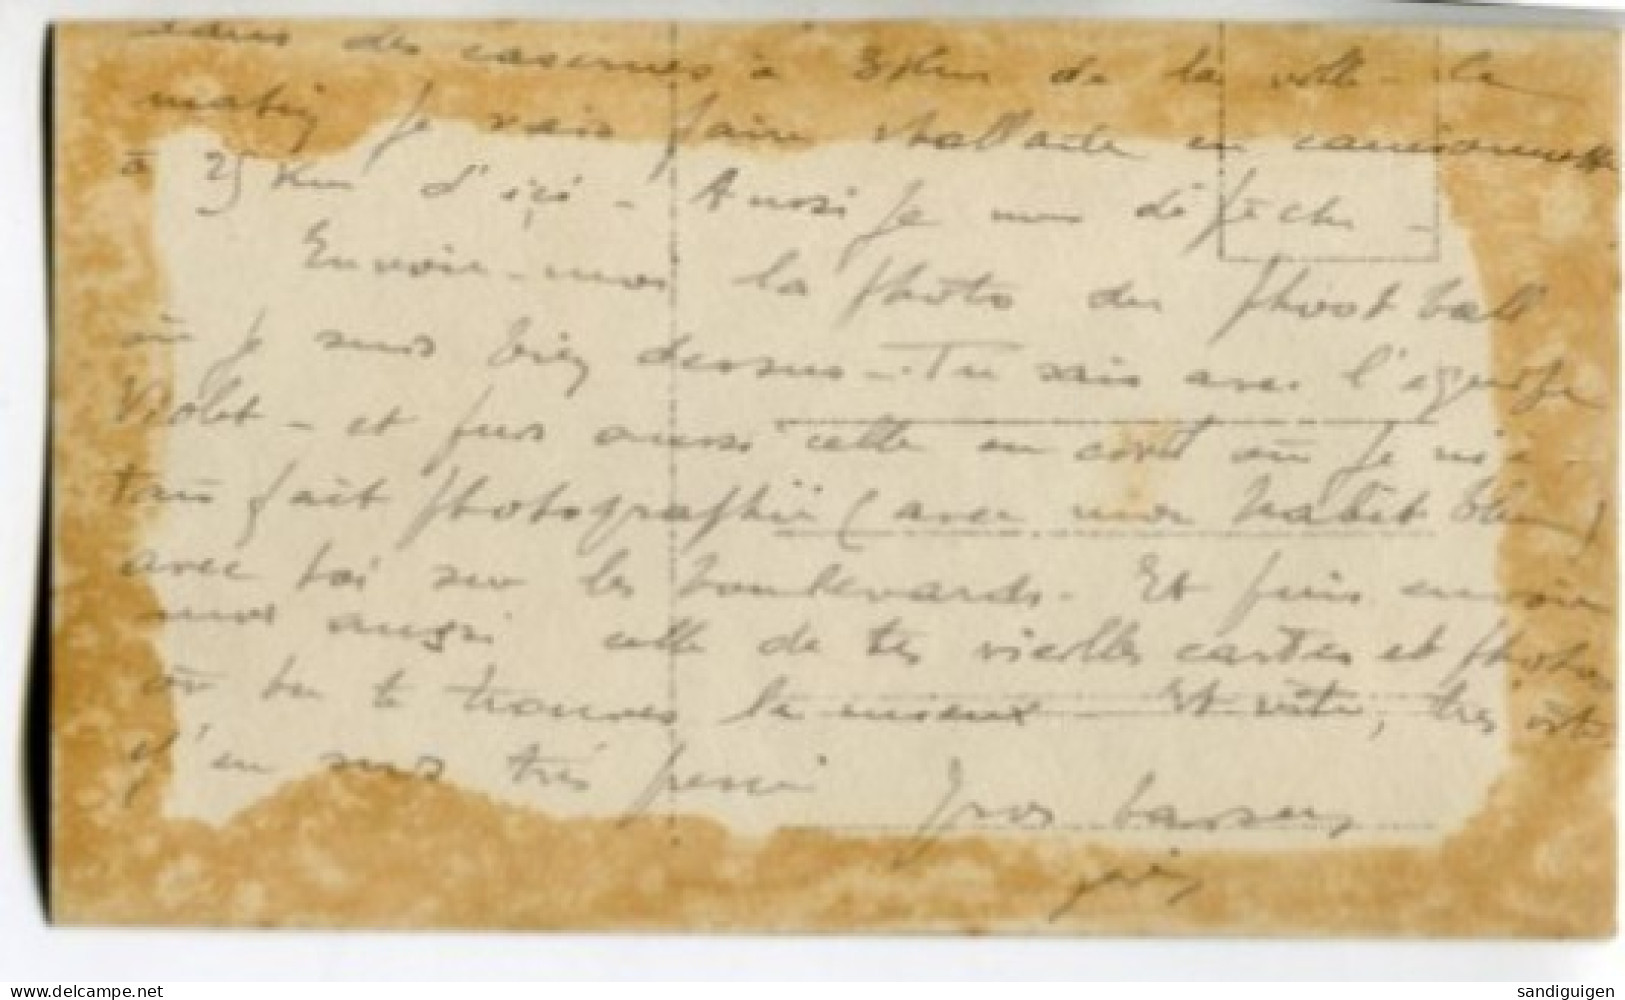 dans des casernes à 3 Km de la ville - Ce
matin je vais faire en camionnette
à 25 Km d'içi - Aussi je me dépèche -
Envoie-moi la photo du phoot ball
où je suis bien dessus - Tu sais avec l'equipe
Violet - et puis aussi celle en où je
fait photographié (avec mon habit bleu)
avec toi sur les boulevards. Et puis envoie
moi aussi celle de tes vieilles cartes et photos
où tu te trouves le mieux - Et vite, très vite
j'en suis très pressé Gros baisers
delcampe.net
sandiguigen